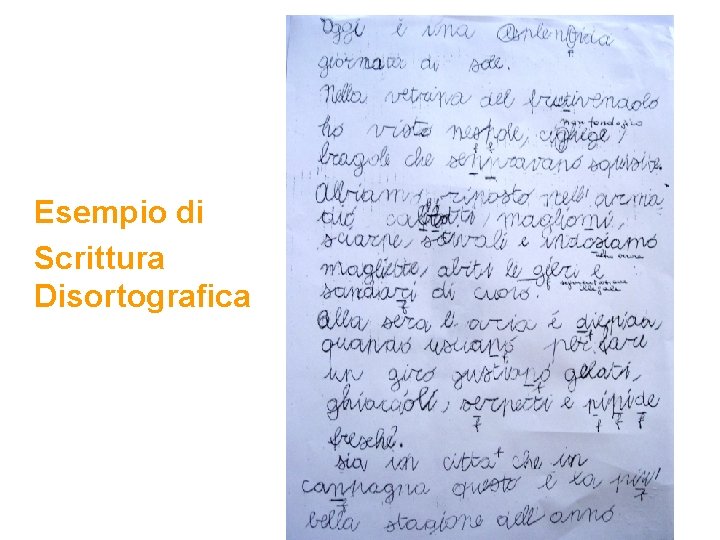 Esempio di
Scrittura
Disortografica
Oggi è una splendida
giornata di sole.
Nella vetrina del frutivendolo
non fonologico
ho visto nespole,
fragole che senpravano squisite.
Abbiamo riposto nell'arma
dio maglioni,
scarpe, stivali e indosiamo
magliette, abiti le gieri e
sandari di cuoio.
Alla sera l'aria è
quando usciano per fare
un giro gustiano gelati,
ghiaccioli, serpetti e pipide
fresche.
sia in città che in
canpagna questo è la più
bella stagione dell'anno